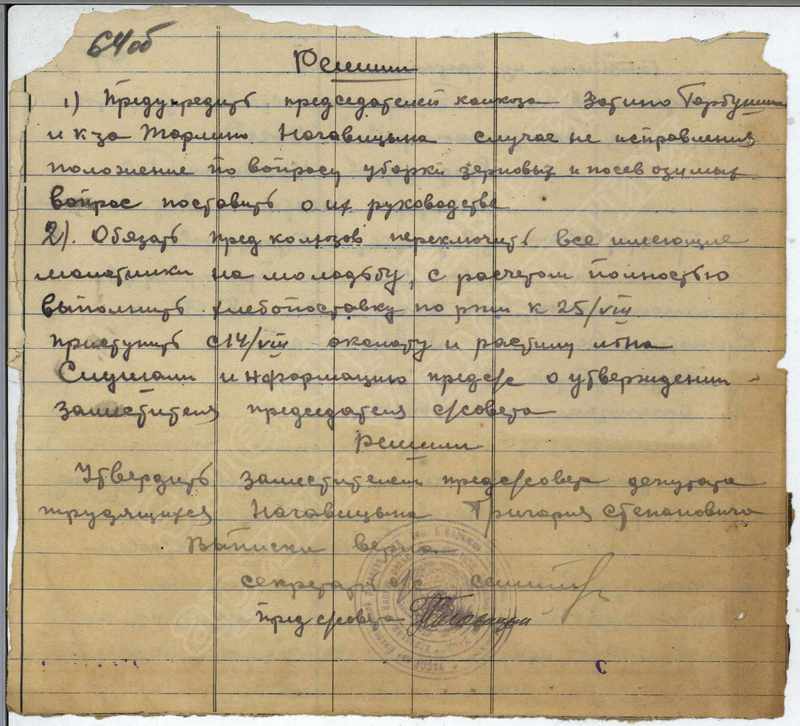 64 об
Решили
1) Предупредить председателей колхоза Затино Горбунши
и к-за Марлино Ногавицына случае не исправления
положение по вопросу уборки зерновых и посев озимых
вопрос поставить о их руководстве
2). Обязать пред колхозов переключить все имеющие
молотилки на молодьбу, с расчетом полностью
выполнить хлебопоставку по ржи к 25/VIII
приступить с 14/VIII околоту и растилу льна
Слушали информацию пред с/с о утверждении
заместителя председателя с/совета
решили
Утвердить заместителем пред с/совета депутата
трудящихся Ногавицына Григория Степановича
Выписка верна
секретарь с/с
пред с/совета